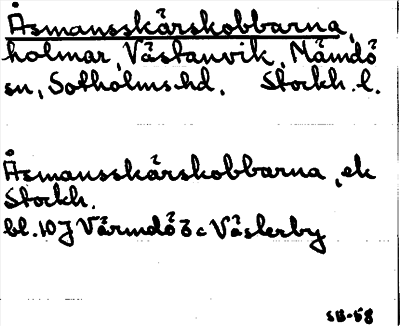 Åsmansskärskobbarna,
holmar, Västanvik, Nämdö
sn, Sotholms hd, Stockh. l.
Åsmansskärskobbarna, ek
Stockh.
bl. 10J Värmdö 3c Västerby
SB-58